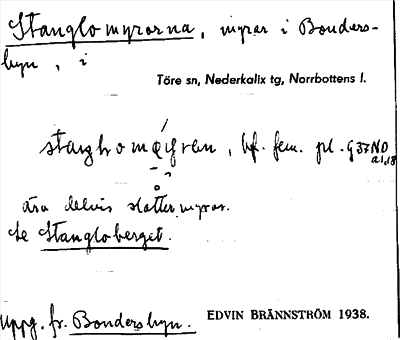 Stanglomyrorna, myrar i Bonders-
byn, i
Töre sn, Nederkalix tg, Norrbottens l.
bf. fem. pl. g 37 ND
a 1,18
äro delvis slåttermyror.
Se Stangloberget.
Uppg. fr. Bondersbyn.
EDVIN BRÄNNSTRÖM 1938.